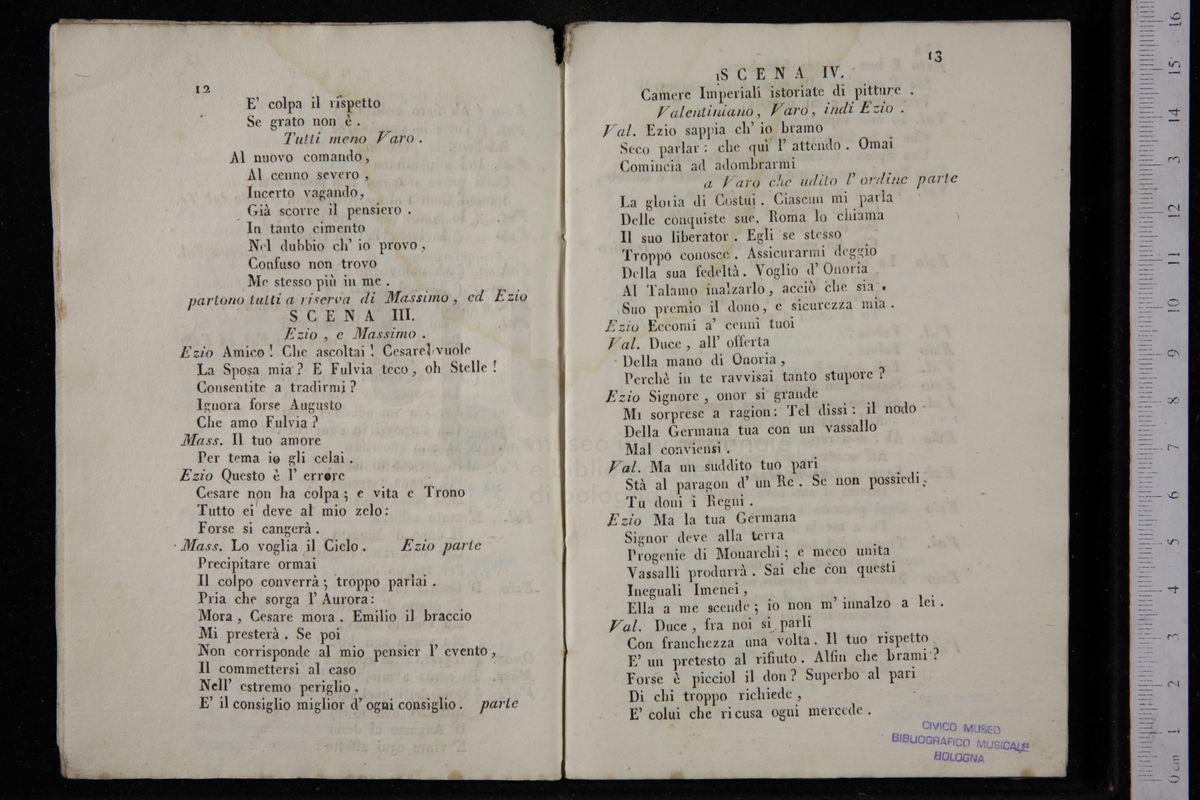 12
E' colpa il rispetto
Se grato non è .
Tutti meno Varo .
Al nuovo comando,
Al cenno severo ,
Incerto vagando,
Già scorre il pensiero .
In tanto cimento
Nel dubbio ch' io provo ,
Confuso non trovo
Me stesso più in me .
partono tutti a riserva di Massimo , ed Ezio
SCENA III.
Ezio , e Massimo .
Ezio Amico ! Che ascoltai ! Cesare vuole
La Sposa mia ? E Fulvia teco, oh Stelle !
Consentite a tradirmi ?
Ignora forse Augusto
Che amo Fulvia ?
Mass. Il tuo amore
Per tema io gli celai .
Ezio Questo è l' errore
Cesare non ha colpa ; e vita e Trono
Tutto ei deve al mio zelo :
Forse si cangerà .
Mass. Lo voglia il Cielo . Ezio parte
Precipitare ormai
Il colpo converrà ; troppo parlai .
Pria che sorga l' Aurora :
Mora , Cesare mora . Emilio il braccio
Mi presterà . Se poi
Non corrisponde al mio pensier l' evento ,
Il commettersi al caso
Nell' estremo periglio ,
E' il consiglio miglior d' ogni consiglio . parte
13
SCENA IV.
Camere Imperiali istoriate di pitture .
Valentiniano , Varo , indi Ezio .
Val. Ezio sappia ch' io bramo
Seco parlar : che quì l' attendo . Omai
Comincia ad adombrarmi
a Varo che udito l' ordine parte
La gloria di Costui . Ciascun mi parla
Delle conquiste sue. Roma lo chiama
Il suo liberator . Egli se stesso
Troppo conosce . Assicurarmi deggio
Della sua fedeltà . Voglio d' Onoria
Al Talamo inalzarlo , acciò che sia
Suo premio il dono , e sicurezza mia .
Ezio Eccomi a' cenni tuoi
Val. Duce , all' offerta
Della mano di Onoria ,
Perchè in te ravvisai tanto stupore ?
Ezio Signore , onor si grande
Mi sorprese a ragion : Tel dissi : il nodo
Della Germana tua con un vassallo
Mal conviensi .
Val. Ma un suddito tuo pari
Stà al paragon d' un Re . Se non possiedi ,
Tu doni i Regni .
Ezio Ma la tua Germana
Signor deve alla terra
Progenie di Monarchi ; e meco unita
Vassalli produrrà . Sai che con questi
Ineguali Imenei ,
Ella a me scende ; io non m' innalzo a lei .
Val. Duce , fra noi si parli
Con franchezza una volta . Il tuo rispetto
E' un pretesto al rifiuto . Alfin che brami ?
Forse è picciol il don ? Superbo al pari
Di chi troppo richiede ,
E' colui che ricusa ogni mercede .
CIVICO MUSEO
BIBLIOGRAFICO MUSICALE
BOLOGNA